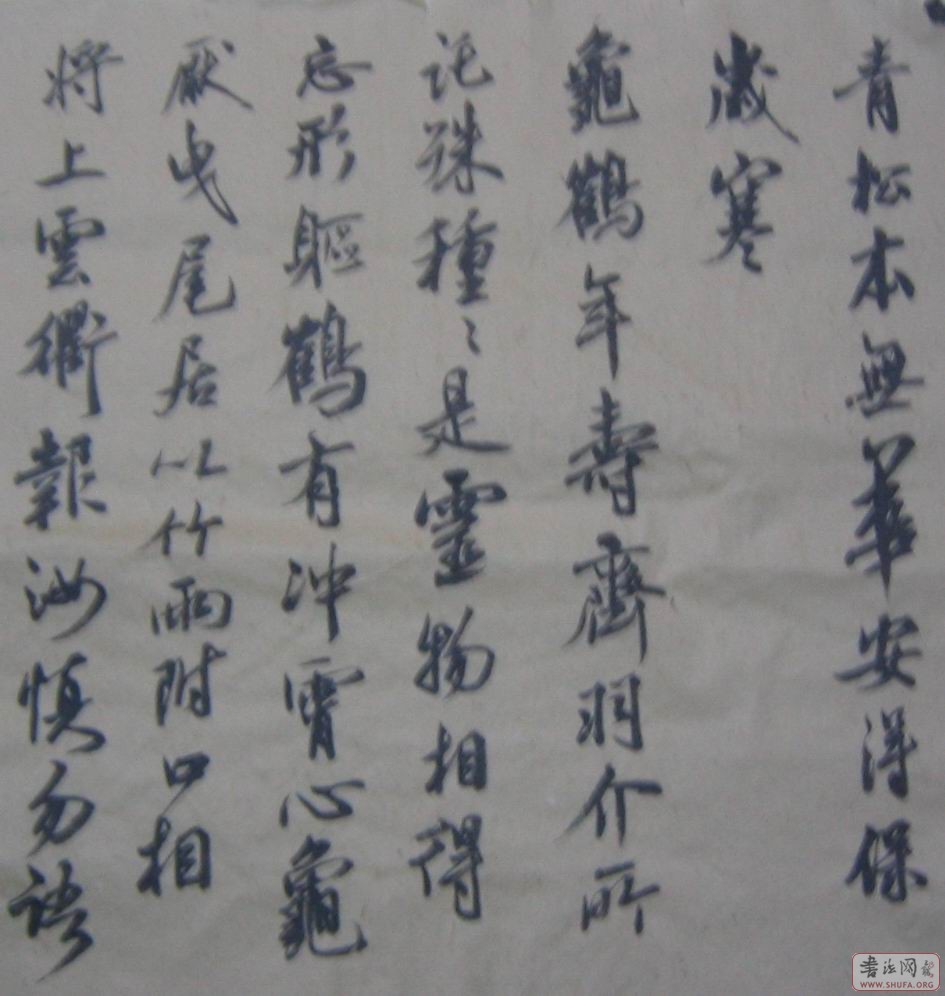 青松本無華安得保
歲寒
龜鶴年壽齊羽介所
託殊種〻是靈物相得
忘形軀鶴有沖霄心龜
厭曳尾居以竹兩附口相
將上雲衢報汝慎勿語
書法网
WWW.SHUFA.ORG